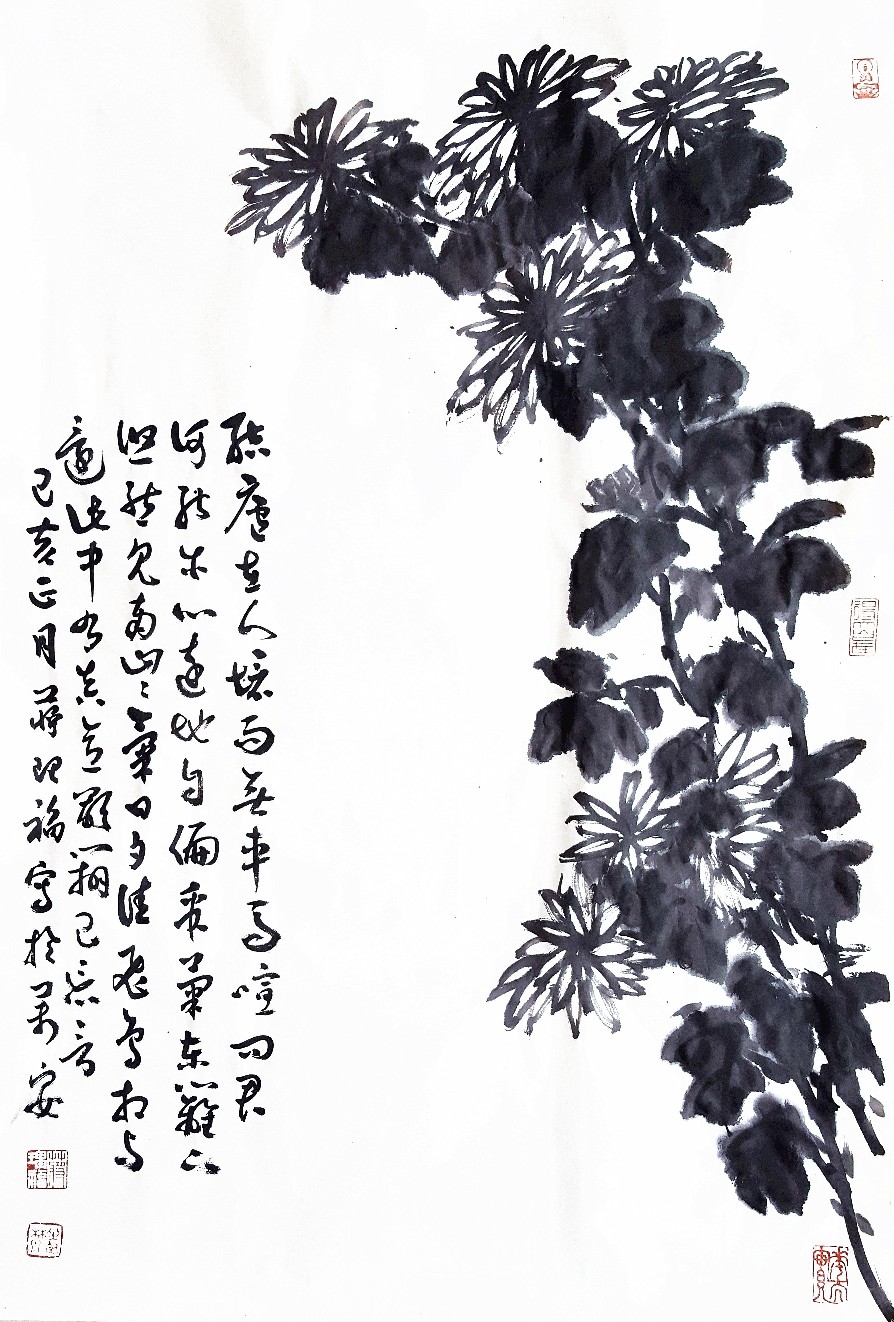 結廬在人境而無車馬喧問君
何能尔心遠地自偏采菊東籬下
悠然見南山〻氣日夕佳飛鳥相与
還此中有真意欲辨已忘言
己亥正月蔣理福寫於萬安